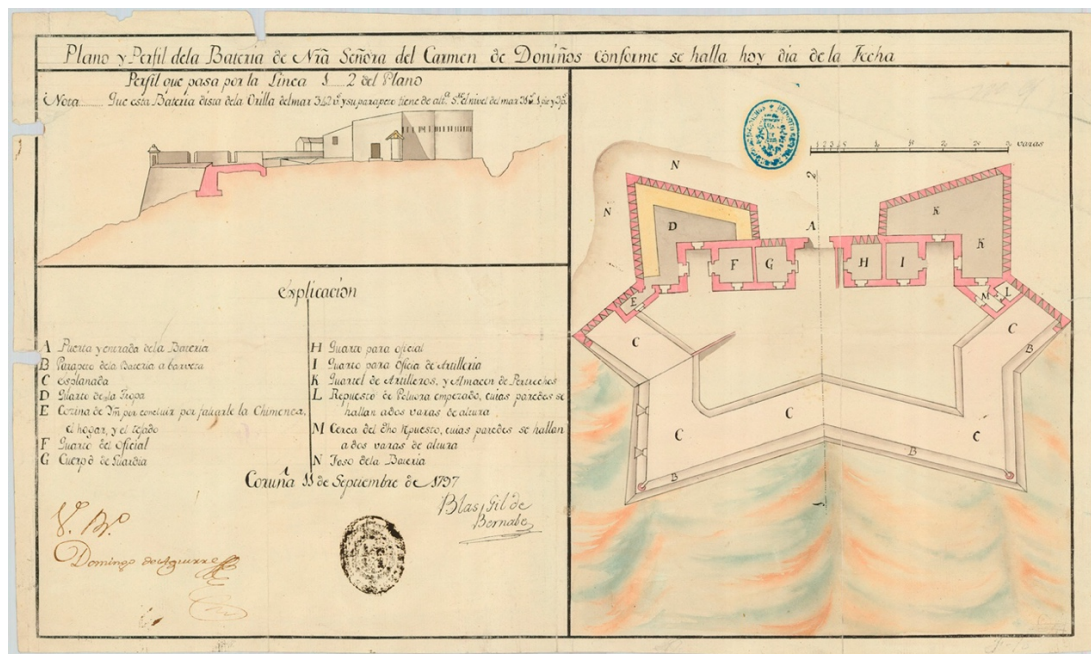 Plano y Perfil dela Bateria de Nrã Señora del Carmen de Doniños conforme se halla hoy dia de la Fecha
Perfil que pasa por la Linea 1 2 del Plano
Nota Que esta Bateria dista dela Orilla del mar y su parapeto tiene de altª el nivel del mar
Explicacion
A Puerta y entrada de la Bateria
B Parapeto de la Bateria a barveta
C Esplanada
D Quarto de la Tropa
E Cozina de Ym por concluir por faltarle la Chimenea,
el hogar, y el tejado
F Quarto del oficial
G Cuerpo de Guardia
H Quarto para oficial
I Quarto para oficial de Artilleria
K Quartel de Artilleros, y Almacen de Pertrechos
L Repuesto de Polvora empezado, cuias paredes se
hallan ados varas de altura
M Cerca del dho Rpuesto, cuias paredes se hallan
a dos varas de altura
N Foso de la Bateria
Coruña 11 de Septiembre de 1797
Blas Gil de
Bernabe
Vº Bº
Domingo de Aguirre
varas
N
N
2
A
D
K
K
F
G
H
I
E
M
L
C
C
B
C
C
C
B
B
1